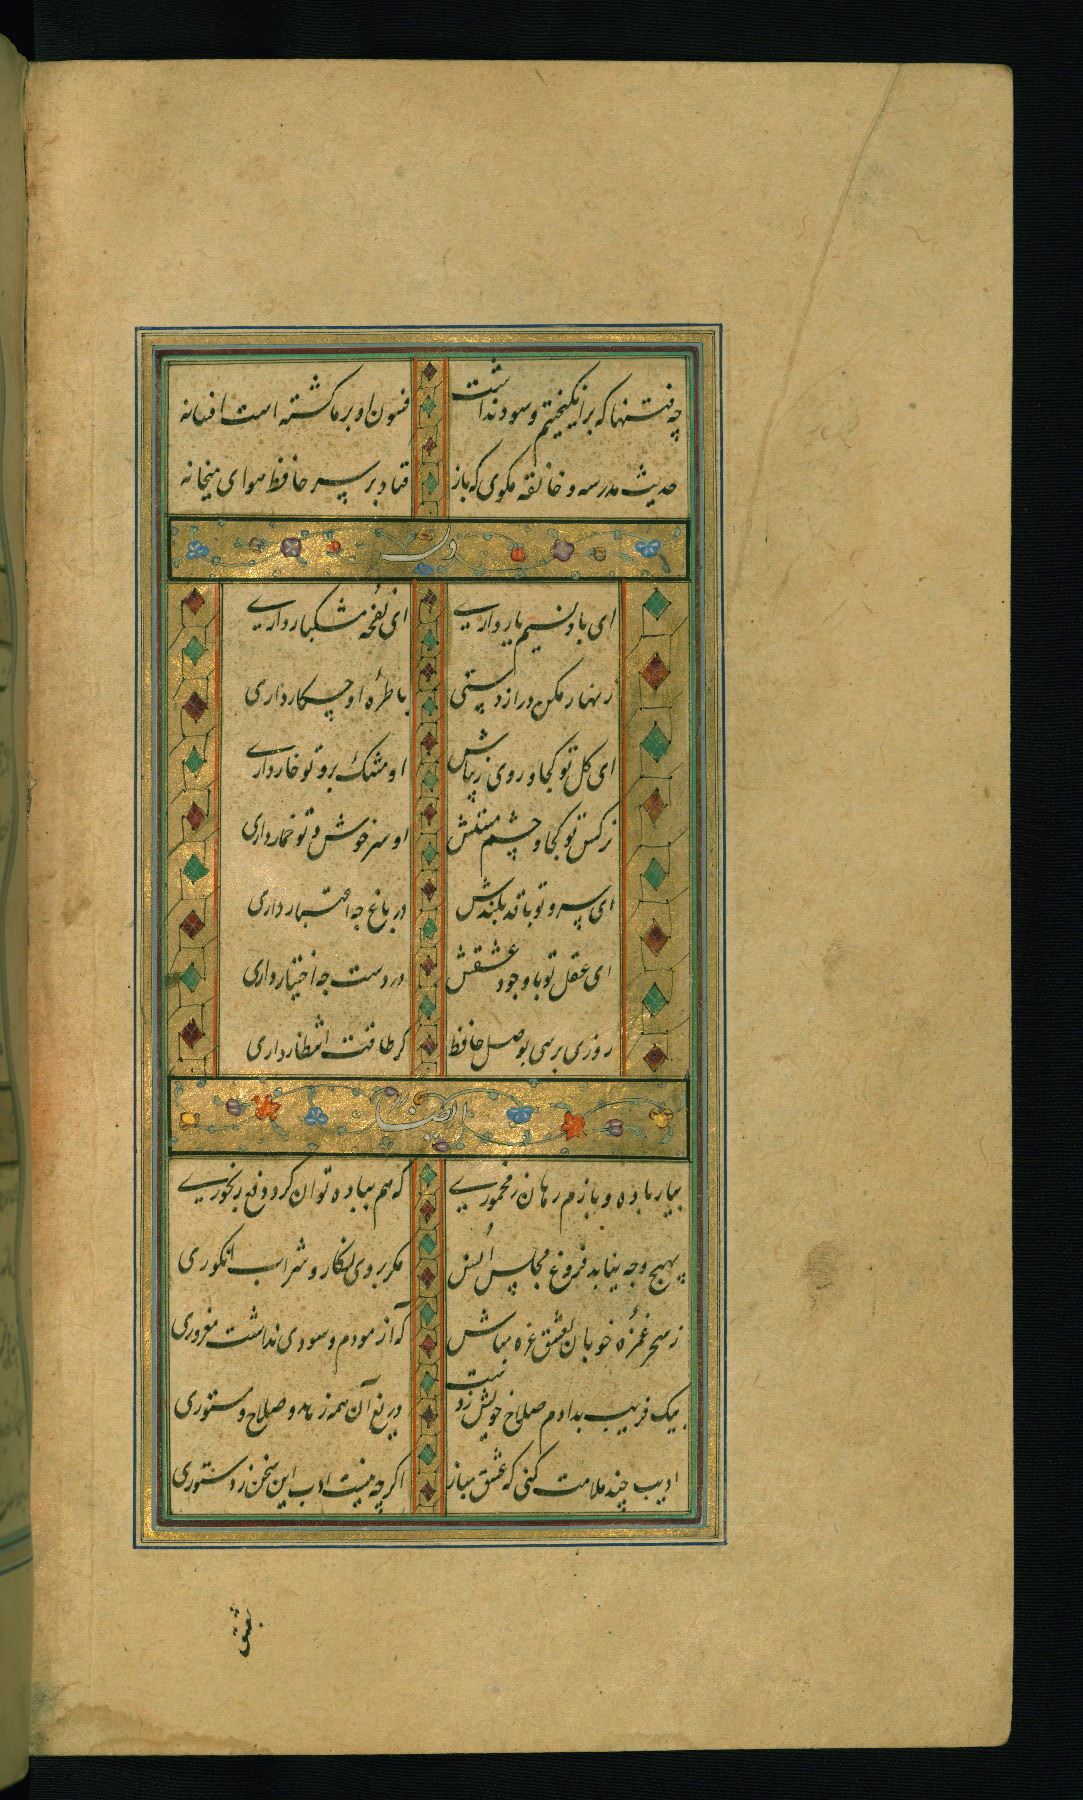 چه فتنها که برانکیختیم و سود نداشت فسون او بر ما کشته است افسانه
حدیث مدرسه و خانقه مکوی که باز فتاد بر سر حافظ هوای میخانه
وله
ای باد نسیم یار داری ای نفحه مشکبار داری
زنهار مکن دراز دستی با طره او چکار داری
ای کل تو کجا و روی زیباش او مشک و تو خار داری
نرکس تو کجا و چشم مستش او سرخوش و تو خمار داری
ای سرو تو با قد بلندش در باغ چه اعتبار داری
ای عقل تو با وجود عشقش در دست چه اختیار داری
روزی برسی بوصل حافظ کر طاقت انتظار داری
ایضا
بیار باده و بازم رهان ز مخموری که هم بباده توان کرد دفع رنجوری
بهیچ وجه نیابد فروغ مجلس انس مکر بروی نکار و شراب انکوری
ز سحر غمزه خوبان بعشق غره مباش که آزمودم و سودی نداشت مغروری
بیک فریب بدادم صلاح خویش ز دست دریغ آن همه زهد و صلاح و مستوری
ادیب چند ملامت کنی که عشق مباز اکرچه نیست ادب این سخن ز دستوری
بعشق